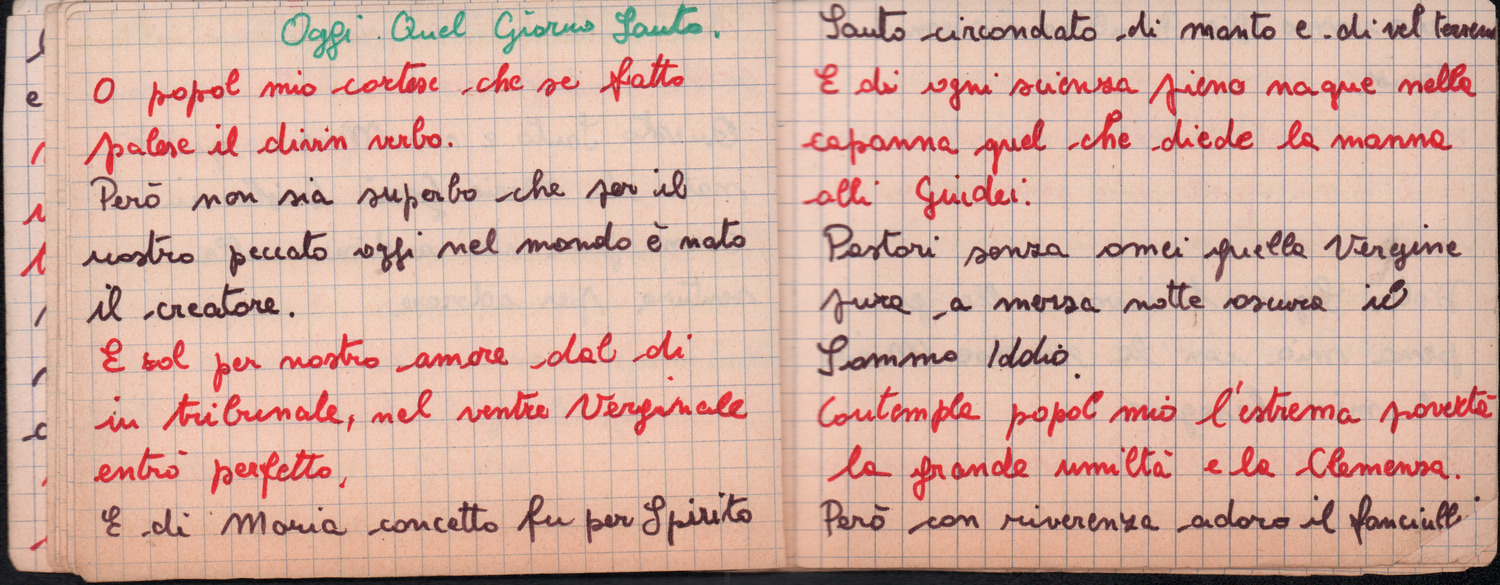 Oggi. Quel Giorno Santo.
O popol mio cortese che se fatto
palese il divin verbo.
Però non sia superbo che per il
nostro peccato oggi nel mondo è nato
il creatore.
E sol per nostro amore dal di
in tribunale, nel ventre Verginale
entrò perfetto,
E di Maria concetto fu per Spirito
Santo circondato di manto e di vel terreno
E di ogni scienza pieno naque nella
capanna quel che diede la manna
alli Guidei.
Pastori senza omei quella Vergine
pura a mezza notte oscura il
Sommo Iddio.
Contempla popol mio l'estrema povertà
la grande umiltà e la Clemenza.
Però con riverenza adoro il fanciull